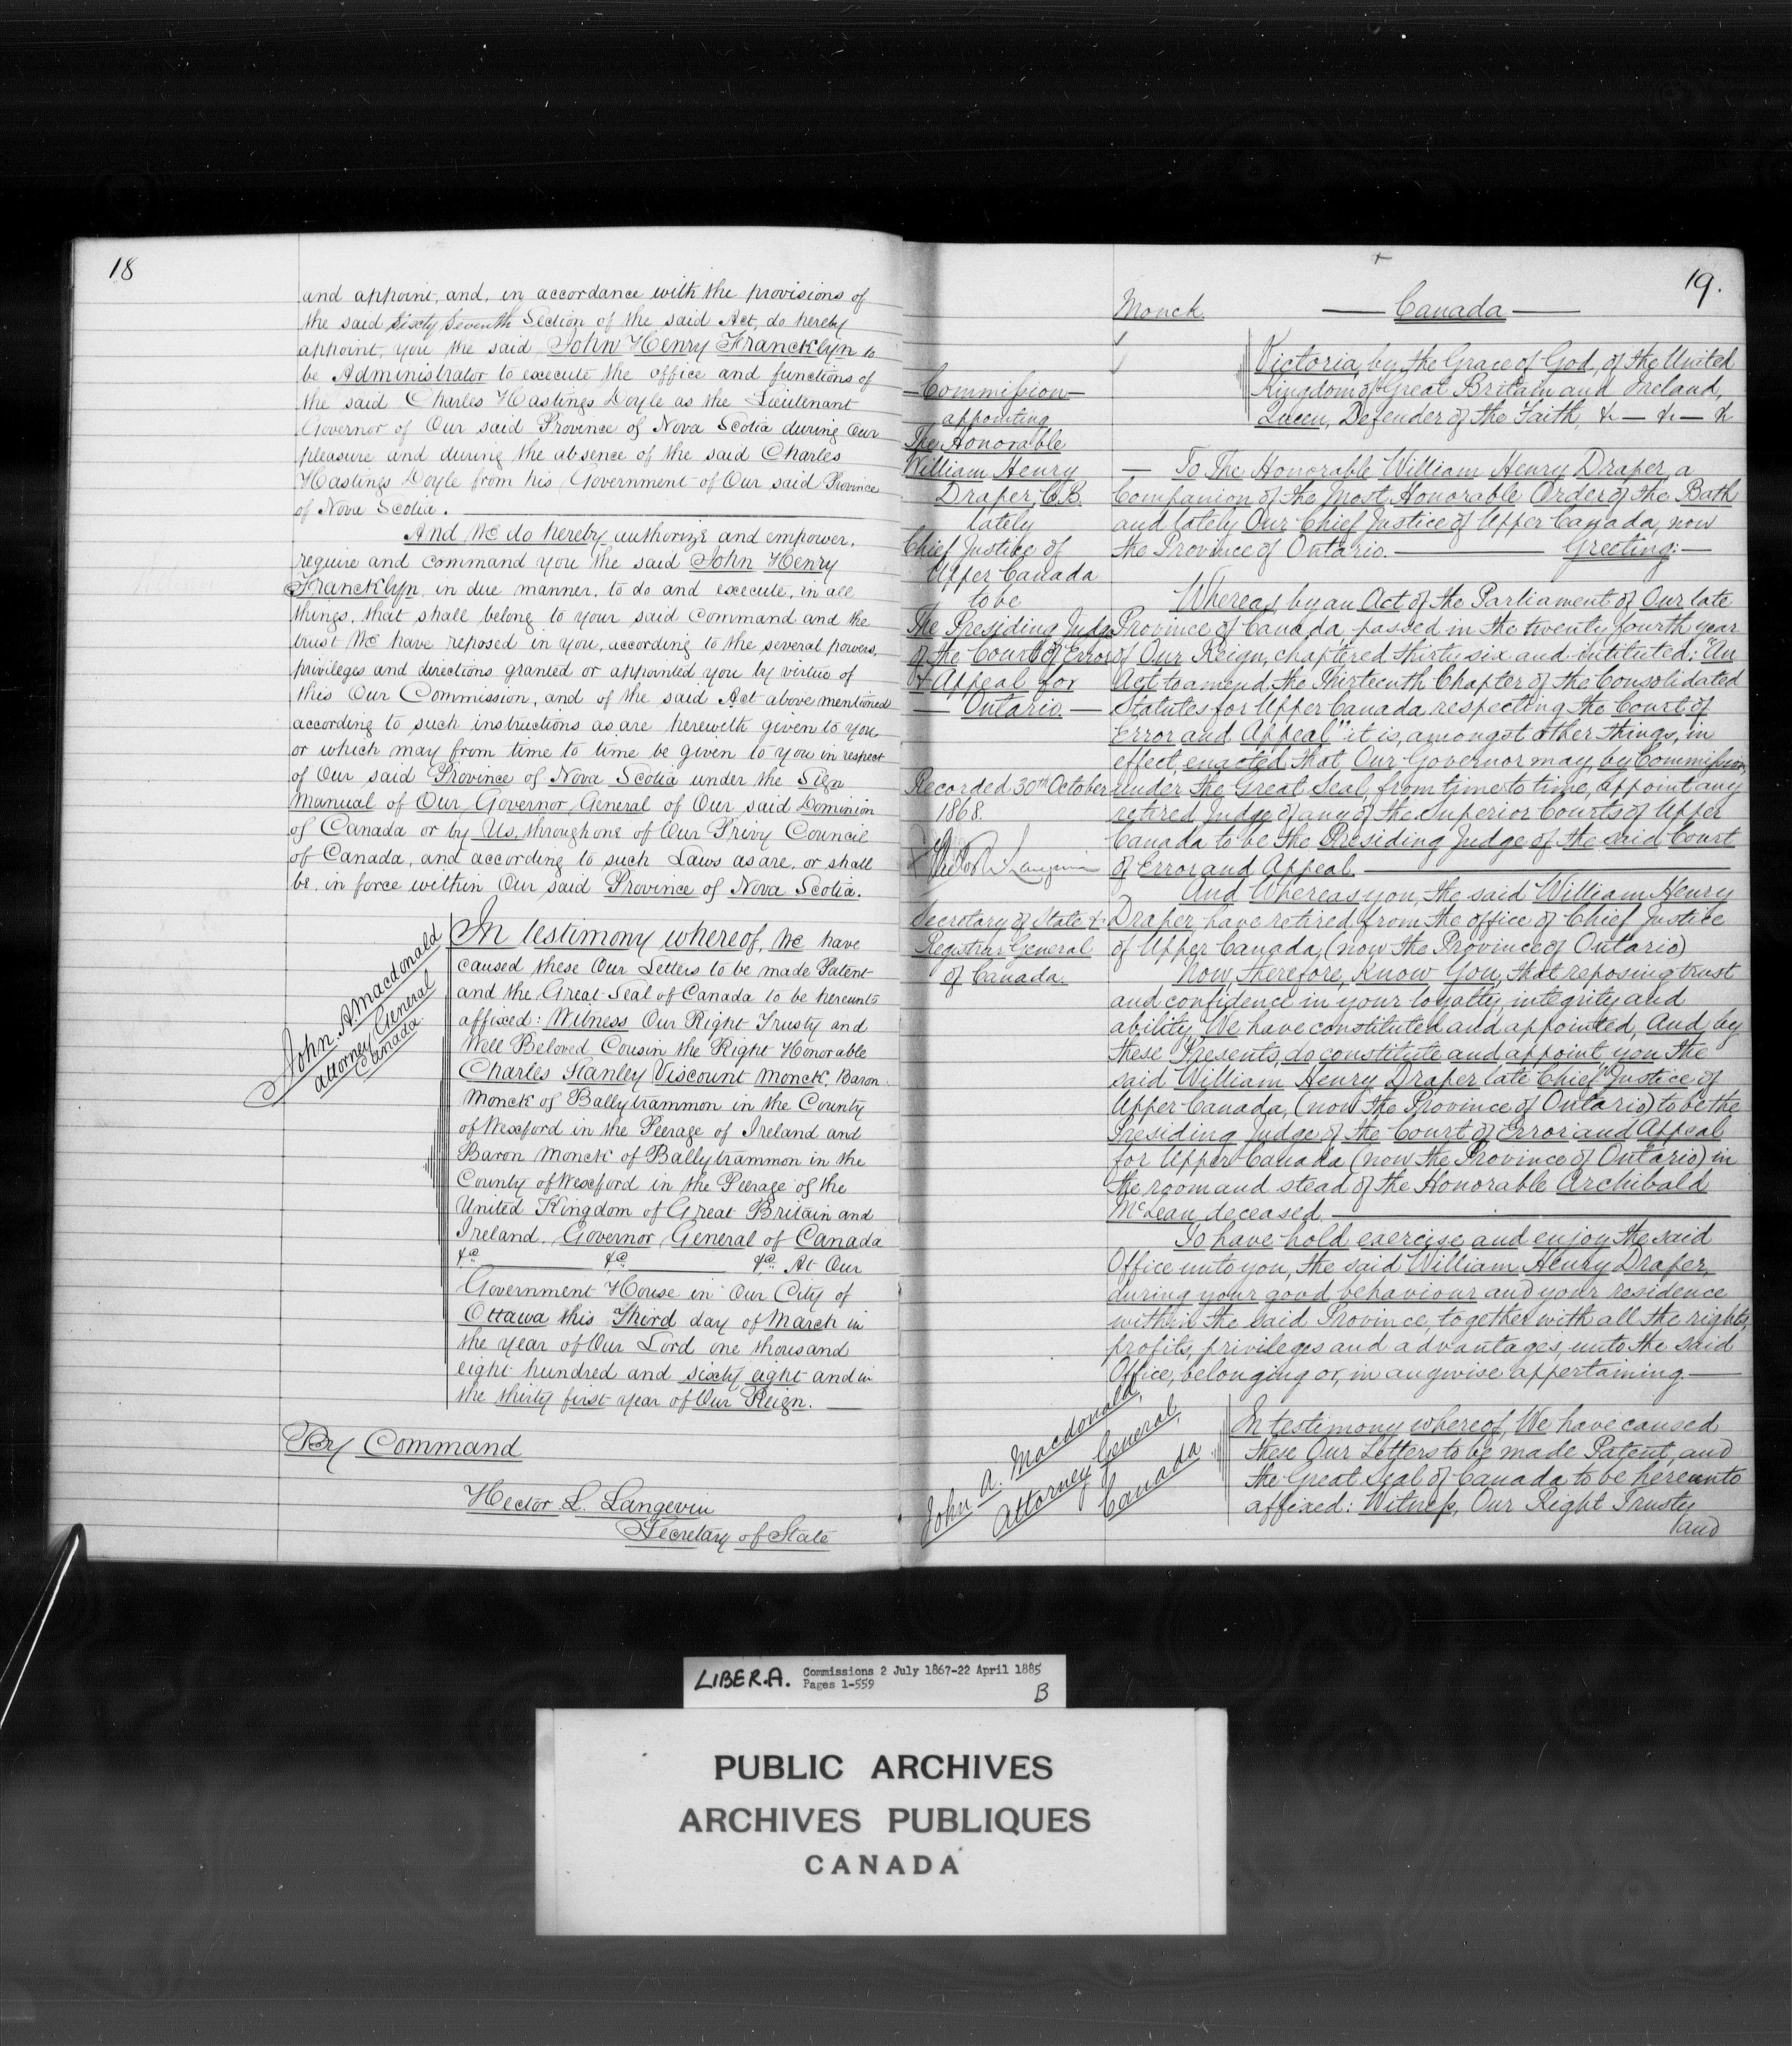 18
and appoint, and, in accordance with the provisions of
the said Sixty Seventh Section of the said Act, do hereby
appoint, you the said John Henry Francklyn to
be Administrator to execute the office and functions of
the said Charles Hastings Doyle as the Lieutenant
Governor of Our said Province of Nova Scotia during Our
pleasure and during the absence of the said Charles
Hastings Doyle from his Government of Our said Province
of Nova Scotia.
And We do hereby authorize and empower,
require and command you the said John Henry
Francklyn in due manner, to do and execute, in all
things, that shall belong to your said Command and the
trust We have reposed in you, according to the several powers,
privileges and directions granted or appointed you by virtue of
this Our Commission, and of the said Act above mentioned
according to such instructions as are herewith given to you
or which may from time to time be given to you in respect
of Our said Province of Nova Scotia under the Sign
Manual of Our Governor General of Our said Dominion
of Canada or by Us, through one of Our Privy Council
of Canada, and according to such Laws as are, or shall
be, in force within Our said Province of Nova Scotia.
John A Macdonald
Attorney General
Canada.
In testimony whereof, We have
caused these Our Letters to be made Patent
and the Great Seal of Canada to be hereunto
affixed: Witness Our Right Trusty and
Well Beloved Cousin the Right Honorable
Charles Stanley Viscount Monck, Baron
Monck of Ballytrammon in the County
of Wexford in the Peerage of Ireland and
Baron Monck of Ballytrammon in the
County of Wexford in the Peerage of the
United Kingdom of Great Britain and
Ireland, Governor General of Canada
&c. &c. &c. At Our
Government House in Our City of
Ottawa this Third day of March in
the year of Our Lord one thousand
eight hundred and sixty eight and in
the thirty first year of Our Reign.
By Command
Hector L. Langevin
Secretary of State
19.
Monck.
Canada
Victoria, by the Grace of God, of the United
Kingdom of Great Britain and Ireland,
Queen, Defender of the Faith, &— &— &
Commission
appointing
The Honorable
William Henry
Draper C.B.
lately
Chief Justice of
Upper Canada
to be
The Presiding Judge
of the Court of Error
& Appeal for
Ontario.
Recorded 30th October
1868.
Hector L. Langevin
Secretary of State &
Registrar General
of Canada.
— To The Honorable William Henry Draper, a
Companion of the Most Honorable Order of the Bath
and lately Our Chief Justice of Upper Canada, now
the Province of Ontario. — Greeting: —
Whereas, by an Act of the Parliament of Our late
Province of Canada, passed in the twenty fourth year
of Our Reign, chaptered thirty six and intituled: "An
Act to amend the Thirteenth Chapter of the Consolidated
Statutes for Upper Canada respecting the Court of
Error and Appeal" it is, amongst other things, in
effect, enacted that Our Governor may, by Commission,
under the Great Seal, from time to time, appoint any
retired Judge of any of the Superior Courts of Upper
Canada to be the Presiding Judge of the said Court
of Error and Appeal.
And Whereas you, the said William Henry
Draper, have retired from the office of Chief Justice
of Upper Canada, (now the Province of Ontario)
Now, therefore, Know You, that reposing trust
and confidence in your loyalty, integrity and
ability, We have constituted and appointed, And, by
these Presents, do constitute and appoint, you the
said William Henry Draper late Chief Justice of
Upper Canada, (now the Province of Ontario) to be the
Presiding Judge of the Court of Error and Appeal
for Upper Canada (now the Province of Ontario) in
the room and stead of the Honorable Archibald
McLean, deceased.
To have hold exercise and enjoy the said
Office unto you, the said William Henry Draper,
during your good behaviour and your residence
within the said Province, together with all the rights,
profits, privileges and advantages, unto the said
Office, belonging or, in anywise appertaining.
John A. Macdonald,
Attorney General,
Canada
In testimony whereof, We have caused
these Our Letters to be made Patent, and
the Great Seal of Canada to be hereunto
affixed: Witness, Our Right Trusty
and
LIBER.A. Commissions 2 July 1867-22 April 1885
Pages 1-559
B
PUBLIC ARCHIVES
ARCHIVES PUBLIQUES
CANADA